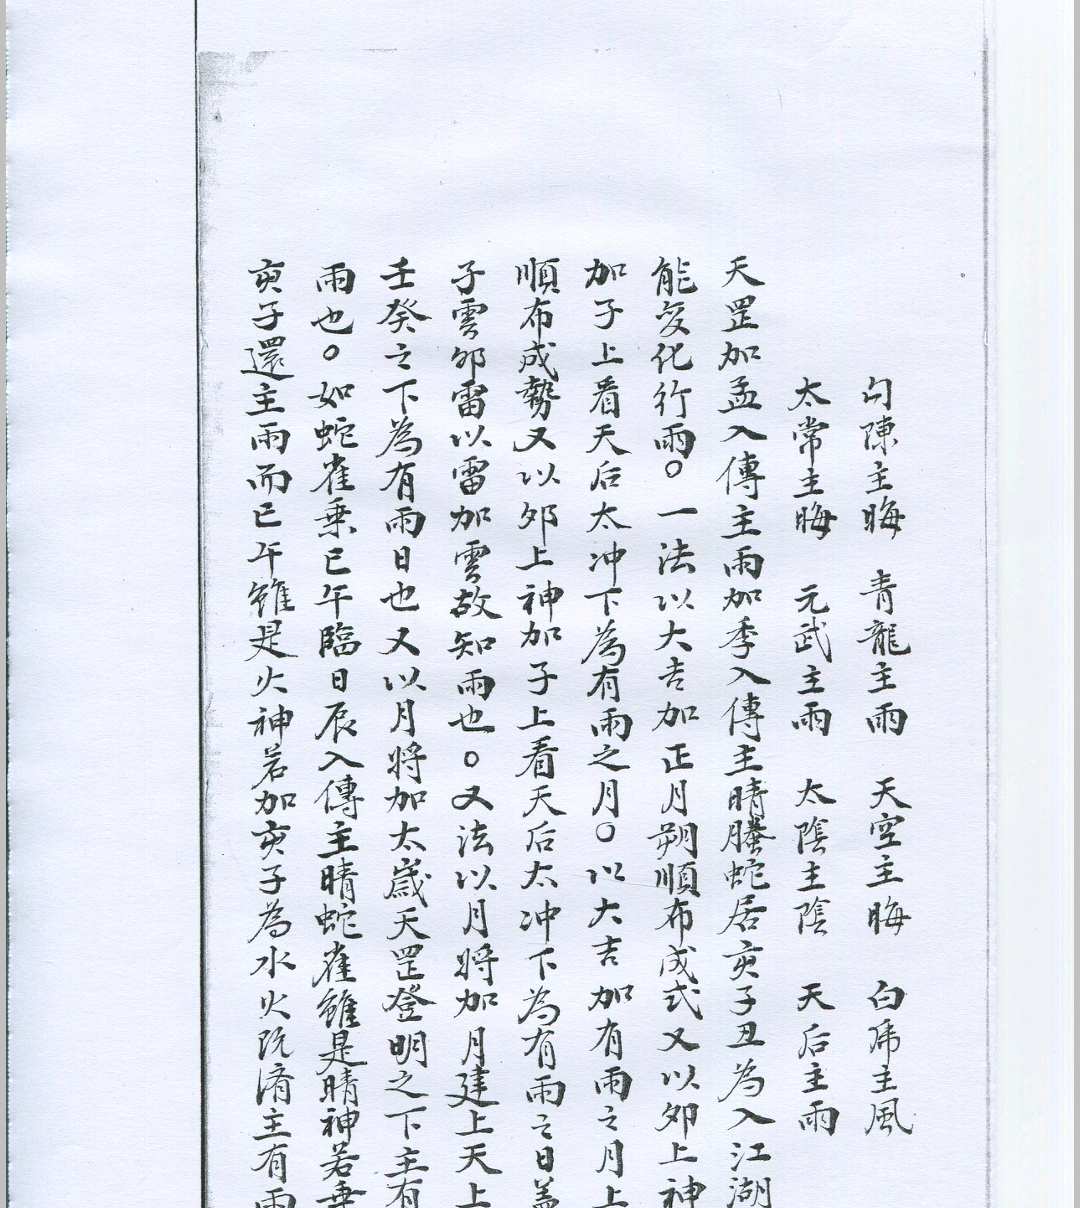 勾陳主晦　青龍主雨　天空主晦　白乕主風
太常主晦　元武主雨　太陰主陰　天后主雨
天罡加孟入傳主雨加季入傳主晴螣蛇居亥子丑為入江湖
能变化行雨。一法以大吉加正月朔順布成式又以卯上神
加子上看天后太冲下為有雨之月。以大吉加有雨之月上
順布成勢又以卯上神加子上看天后太冲下為有雨之日盖
子雲卯雷以雷加雲故知雨也。又法以月將加月建上天上
壬癸之下為有雨日也又以月將加太歲天罡登明之下主有
雨也。如蛇雀乗巳午臨日辰入傳主晴蛇雀雖是晴神若乗
亥子還主雨而巳午雖是火神若加亥子為水火既濟主有雨